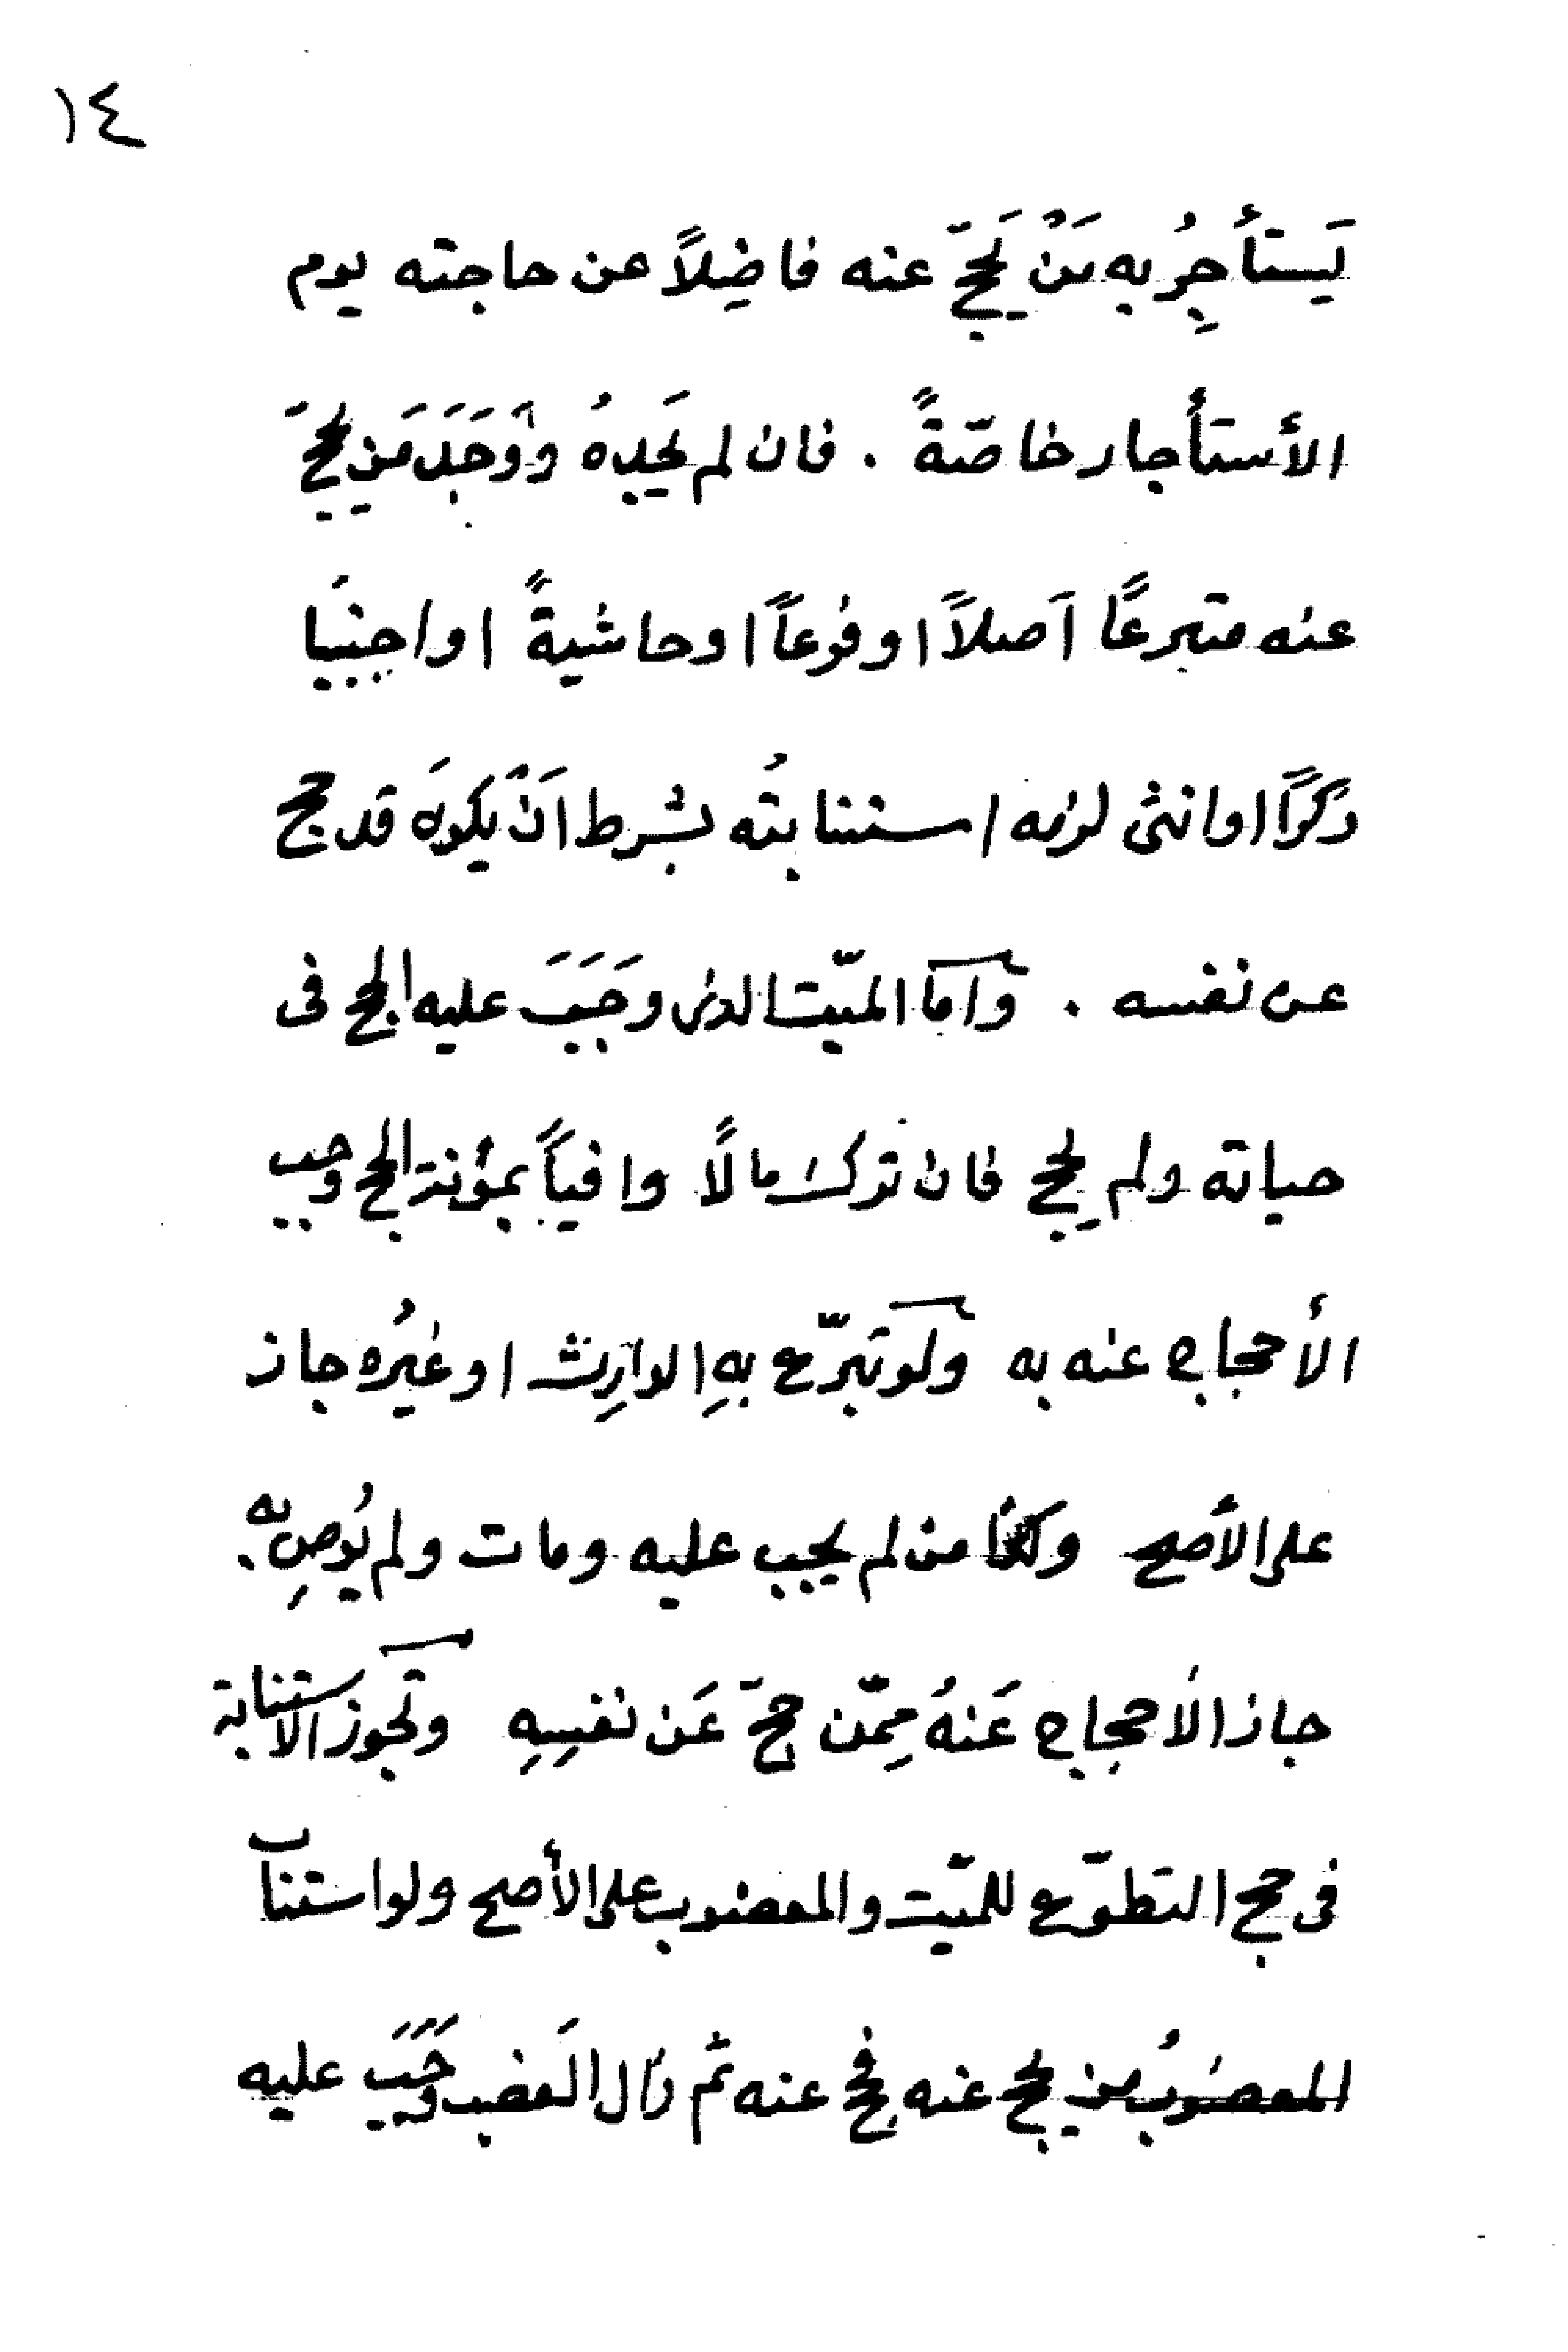 ١٤
يَستأجِرُ به مَنْ يَحجّ عنه فاضِلاً عن حاجته يوم
الأستأجار خاصّةً . فان لم يَجدهُ وَوَجَدَ مَن يحجّ
عنه متبرعًا اَصلاً او فرعاً او حاشيةً او اجنبيَا
ذكرًا او انثى لزمه استنابتُه بشرط اَنْ يكونَ قد حج
عن نفسه . وامّا الميّت الذى وَجَبَ عليه الحج فى
حياته ولم يحج فان ترك مالًا وافياً بمؤنة الحج وجب
الأحجاج عنه به ولو تبرّع بهِ الوارِث او غيرُه جاز
على الأصح وكذا من لم يجب عليه ومات ولم يُوصِ به .
جاز الاَحجاج عَنهُ مِمّن حجّ عَن نفسِهِ وتجوز الاستنابة
فى حج التطوّع للميّت والمعضوب على الأصح ولو استناب
المعضوبُ من يحج عنه فحج عنه ثم زال العَضب وَجَبَ عليه